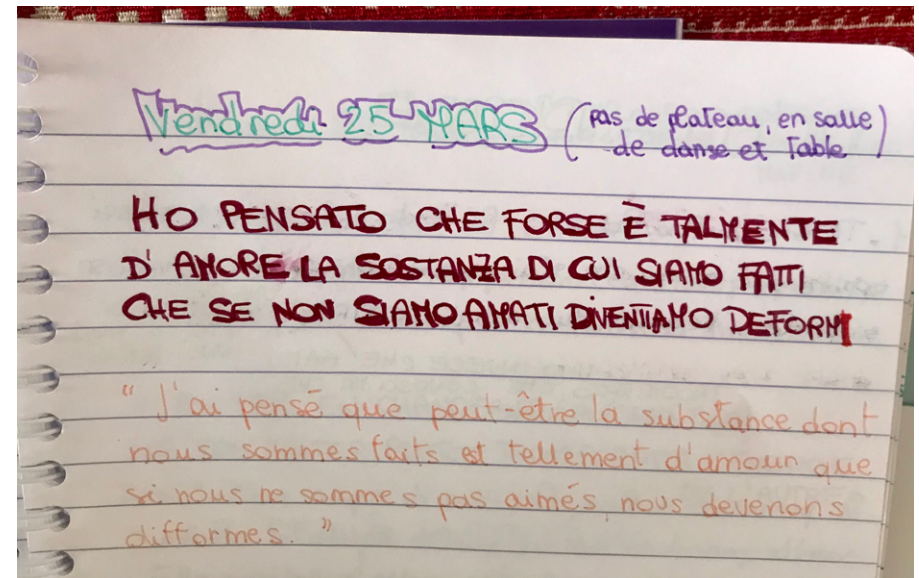 Vendredi 25 MARS (pas de plateau, en salle
de danse et Table)
HO PENSATO CHE FORSE È TALMENTE
D'AMORE LA SOSTANZA DI CUI SIAMO FATTI
CHE SE NON SIAMO AMATI DIVENTIAMO DEFORMI
"J'ai pensé que peut-être la substance dont
nous sommes faits est tellement d'amour que
si nous ne sommes pas aimés, nous devenons
difformes."